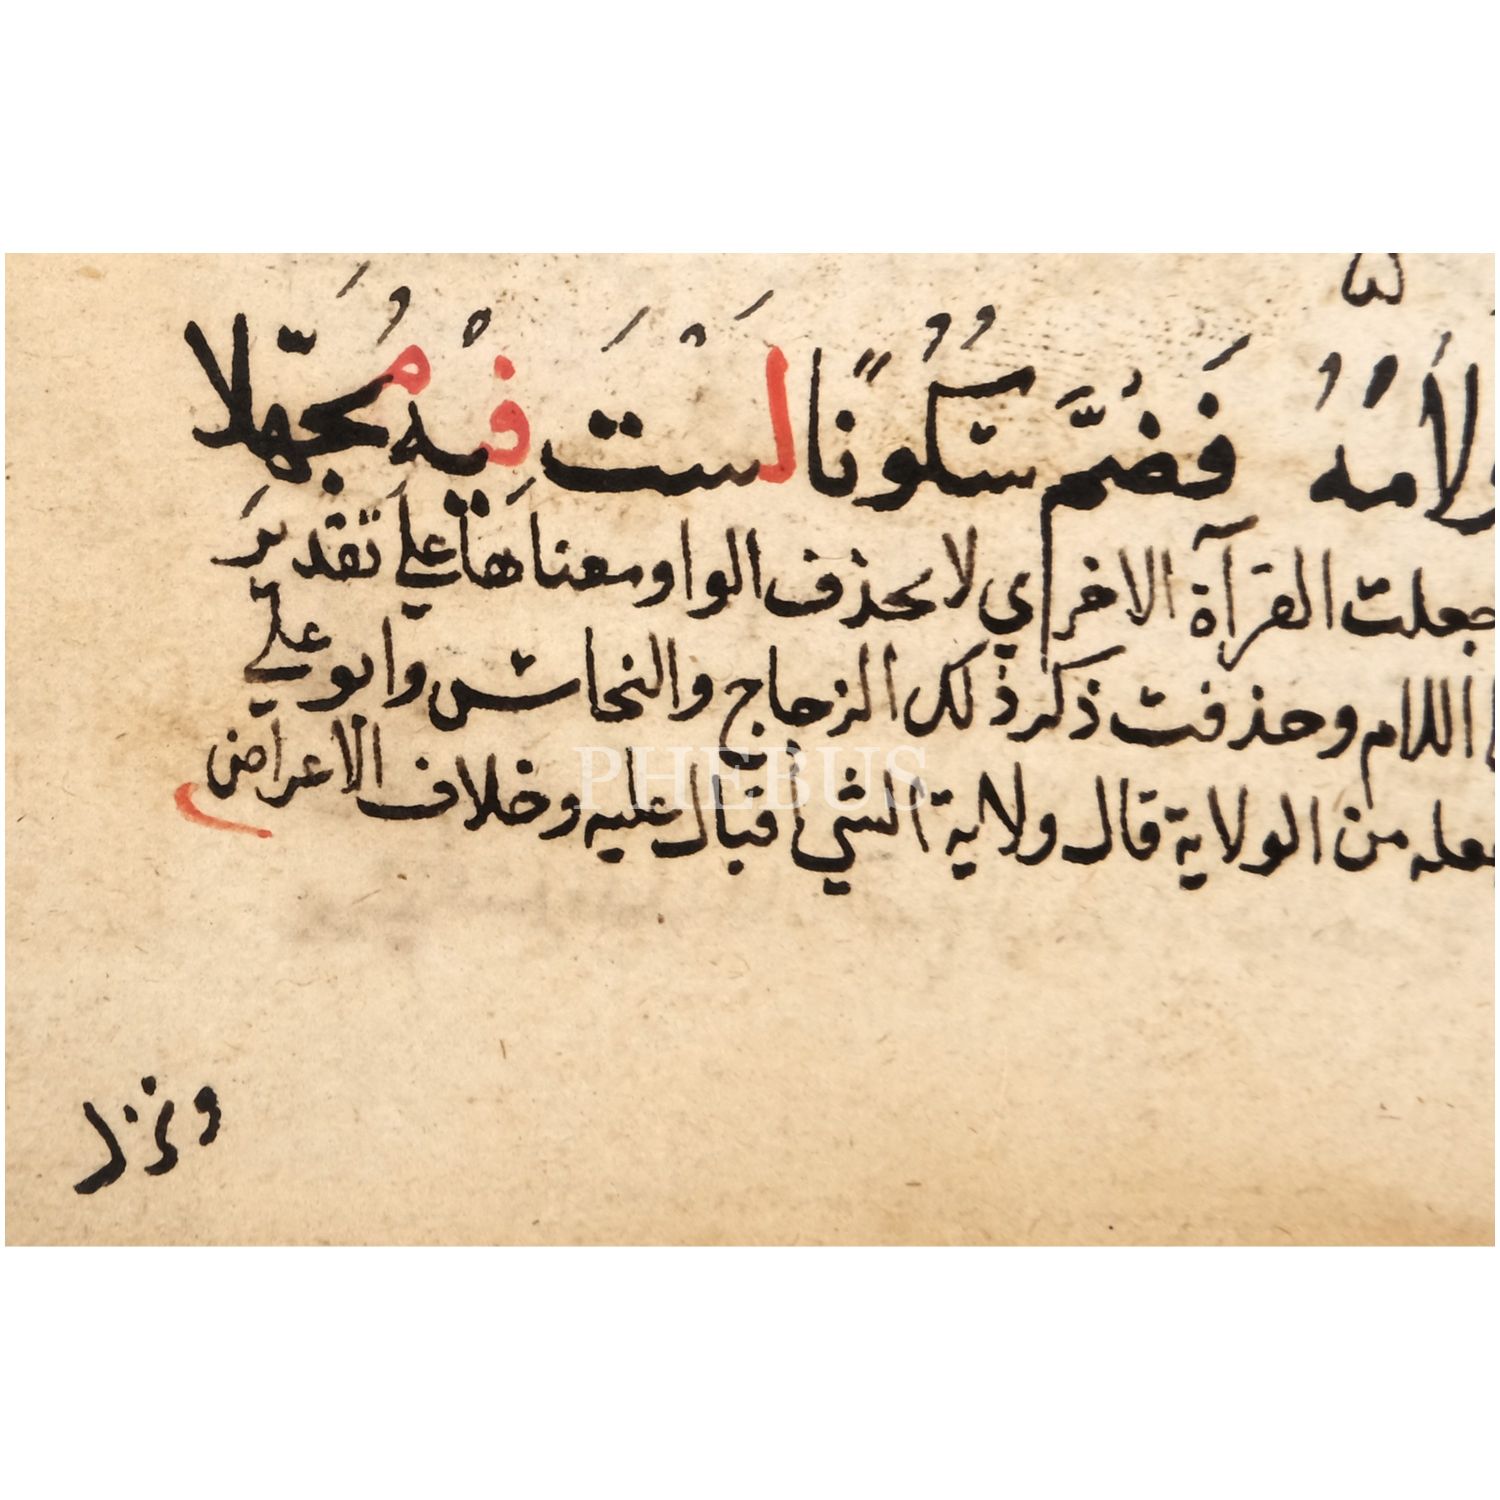 ولَامَهُ فَضُمَّ سُكُونًا لَسْتَ فِيْهِ مُجَهَّلَا
جعلت القرآة الاخراي لا بحذف الواو معناها على تقدير
اللام وحذفت ذكر ذلك الزجاج والنحاس وابو علي
من الولاية قال ولاية الشي اقبال عليه وخلاف الاعراض
PHEBUS
ونزل